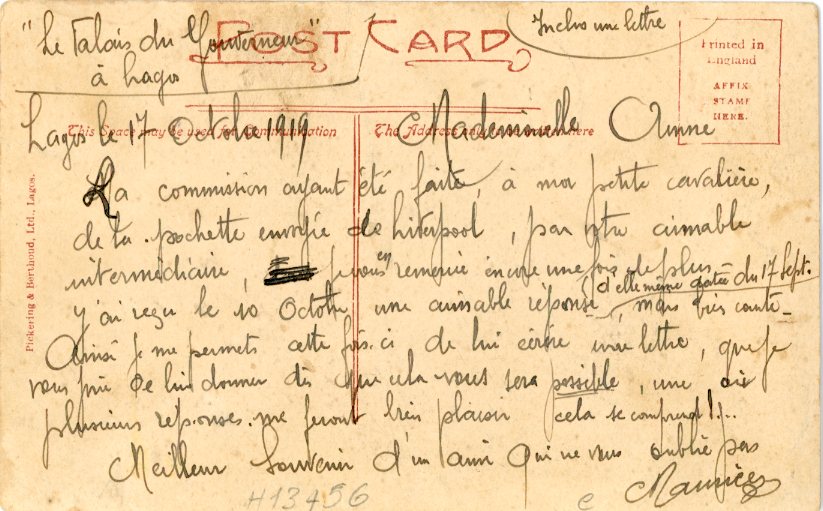 "Le Palais du Gouverneur"
à Lagos
Inclus une lettre
POST CARD
Printed in
England
AFFIX
STAMP
HERE.
This Space may be used for Communication
The Address only
here
Pickering & Berthoud, Ltd., Lagos.
Lagos le 17 Octobre 1919
Mademoiselle Aimée
La commission ayant été faite, à mon petite cavalière,
de la pochette envoyée de Liverpool, par votre aimable
intermédiaire, je vous en remercie encore une fois de plus
J'ai reçu le 10 Octobre, une aimable réponse, mais très courte
(d'elle même datée du 17 Sept.
Ainsi je me permets cette fois-ci, de lui écrire une lettre, que je
vous prie de lui donner dès que cela vous sera possible, une ou
plusieurs réponses me feront bien plaisir cela se comprend!!..
Meilleur Souvenir d'un ami qui ne vous oublie pas
Maurice
H13456
e